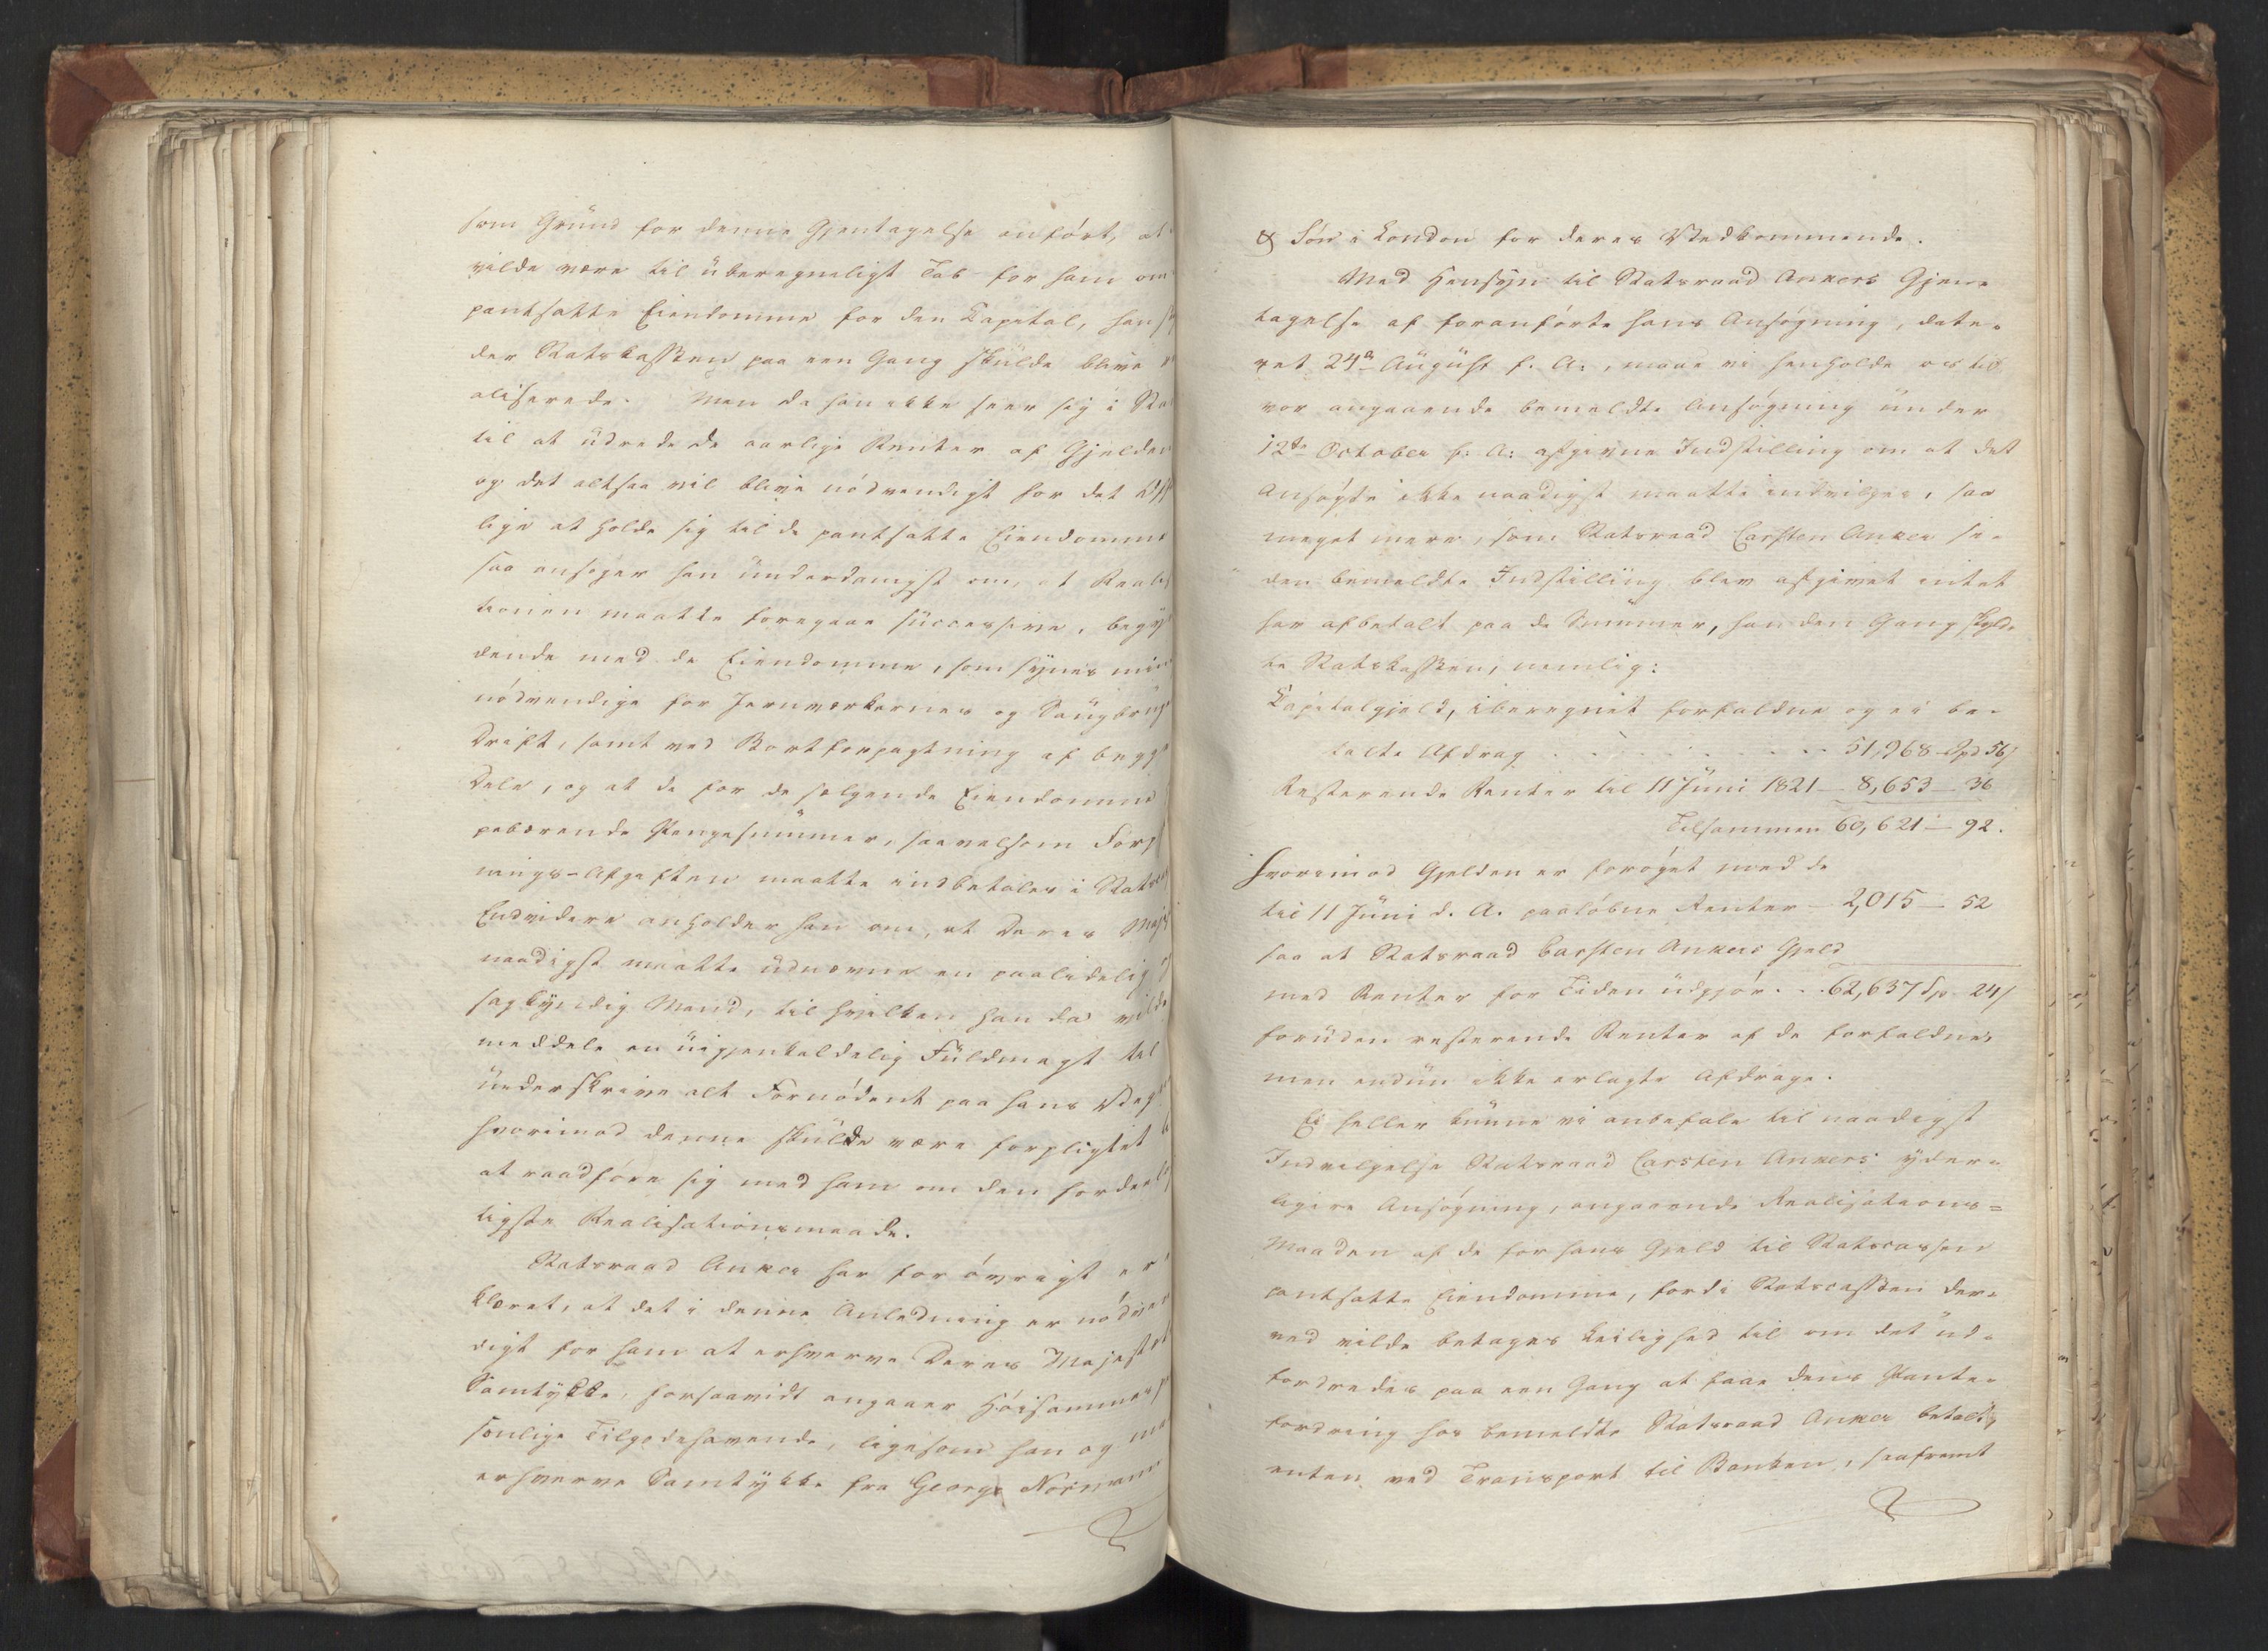 som Grund for denne Gjentagelse anført, at
vilde være til uberegneligt Tab for ham om
pantsatte Eiendomme for den Capital, han
der Statskassen paa een Gang skulde blive
aliserede. Men da han ikke seer sig i Sta
til at udrede de aarlige Renter af Gjelden
og det altsaa vil blive nødvendigt for det
lige at holde sig til de pantsatte Eiendomme
saa ansøger han underdanigst om, at Realis
tionen maatte foregaae successive, begyn
dende med de Eiendomme, som synes min
nødvendige for Jernverkernes og Saugbrug
Drift, samt ved Bortforpagtning af begge
Dele, og at de for de sælgende Eiendomme
pebærende Pengesummer, saavelsom Forp
nings-Afgiften maatte indbetales i Stats
Endvidere anholder han om, at Deres Maje
naadigst maatte udnævne en paalidelig
sagkyndig Mand, til hvilken han da vilde
meddele en uigjenkaldelig Fuldmagt til
underskrive alt Fornødent paa hans Vegne
hvorimod denne skulde være forpligtet
at raadføre sig med ham om den fordeel
ligste Realisationsmaade.
Statsraad Anker har for øvrigt er
klæret, at det i denne Anledning er nødven
digt for ham at erhverve Deres Majestet
Samtykke, forsaavidt angaaer Høisammes
sonlige Tilgodehavende, ligesom han og maa
erhverve Samtykke fra George Norman
& Søn i London for deres Vedkommende.
Med Hensyn til Statsraad Ankers Gjen-
tagelse af foranførte hans Ansøgning, date-
ret 24de August f. A., maae vi henholde os til
vor angaaende bemeldte Ansøgning under
12te October f: A: afgivne Indstilling om at det
Ansøgte ikke naadigst maatte indvilges, saa
meget mere, som Statsraad Carsten Anker si-
den bemeldte Indstilling blev afgivet intet
har afbetalt paa de Summer, han den Gang skyld-
te Statskassen, nemlig:
Capitalgjeld, iberegnet forfaldne og ei be-
talte Afdrag . . . . . . . . 51,968 Spd 56ß
Resterende Renter til 11 Juni 1821 — 8,653 — 36
Tilsammen 60,621 — 92.
hvorimod Gjelden er forøget med de
til 11 Juni d. A. paaløbne Renter — 2,015 — 52
saa at Statsraad Carsten Ankers Gjeld
med Renter for Tiden udgjør . . 62,637 Sp 24ß
foruden resterende Renter af de forfaldne,
men endnu ikke erlagte Afdrage.
Ei heller kunne vi anbefale til naadigst
Indvilgelse Statsraad Carsten Ankers yder-
ligere Ansøgning, angaaende Realisations=
Maaden af de for hans Gjeld til Statscassen
pantsatte Eiendomme, fordi Statscassen der-
ved vilde betages Leilighed til om det ud-
fordredes paa een Gang at faae dens Pante-
fordring hos bemeldte Statsraad Anker betalt,
enten ved Transport til Banken, saafremt